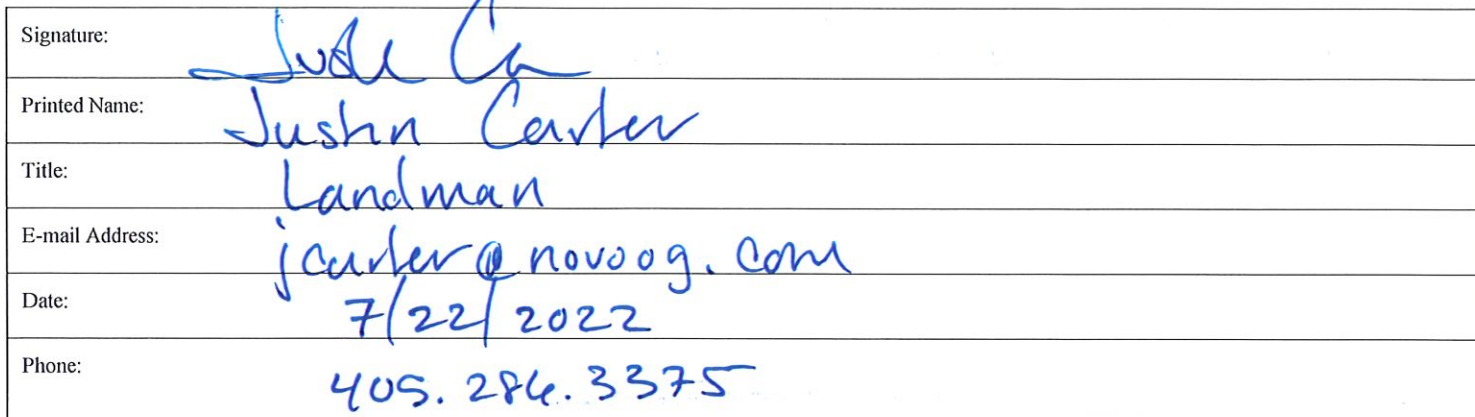 Signature:
Printed Name: Justin Carter
Title: Landman
E-mail Address: jcarter@novoog.com
Date: 7/22/2022
Phone: 405.286.3375